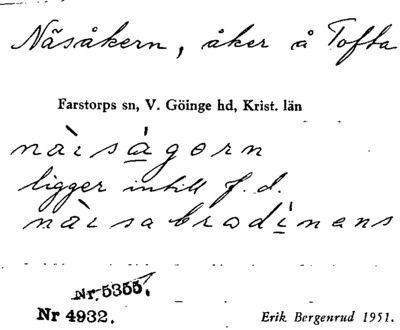 Näsåkern, åker å Tofta
Farstorps sn, V. Göinge hd, Krist. län
nà̀rsågorn
ligger intill f. d.
nàrsabradinans
Nr. 5355.
Nr 4932.
Erik Bergenrud 1951.